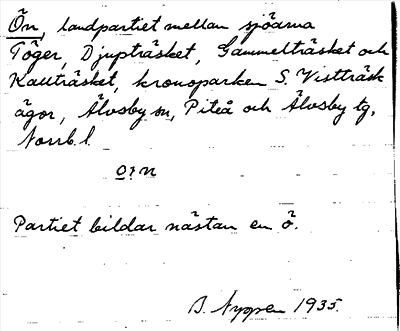 Ön, landpartiet mellan sjöarna
Töger, Djupträsket, Gammelträsket och
Kallträsket, kronoparken S. Vistträsk
ägor, Älvsby sn, Piteå och Älvsby tg,
Norrb. l.
Partiet bildar nästan en ö.
B. Nyppen 1935.